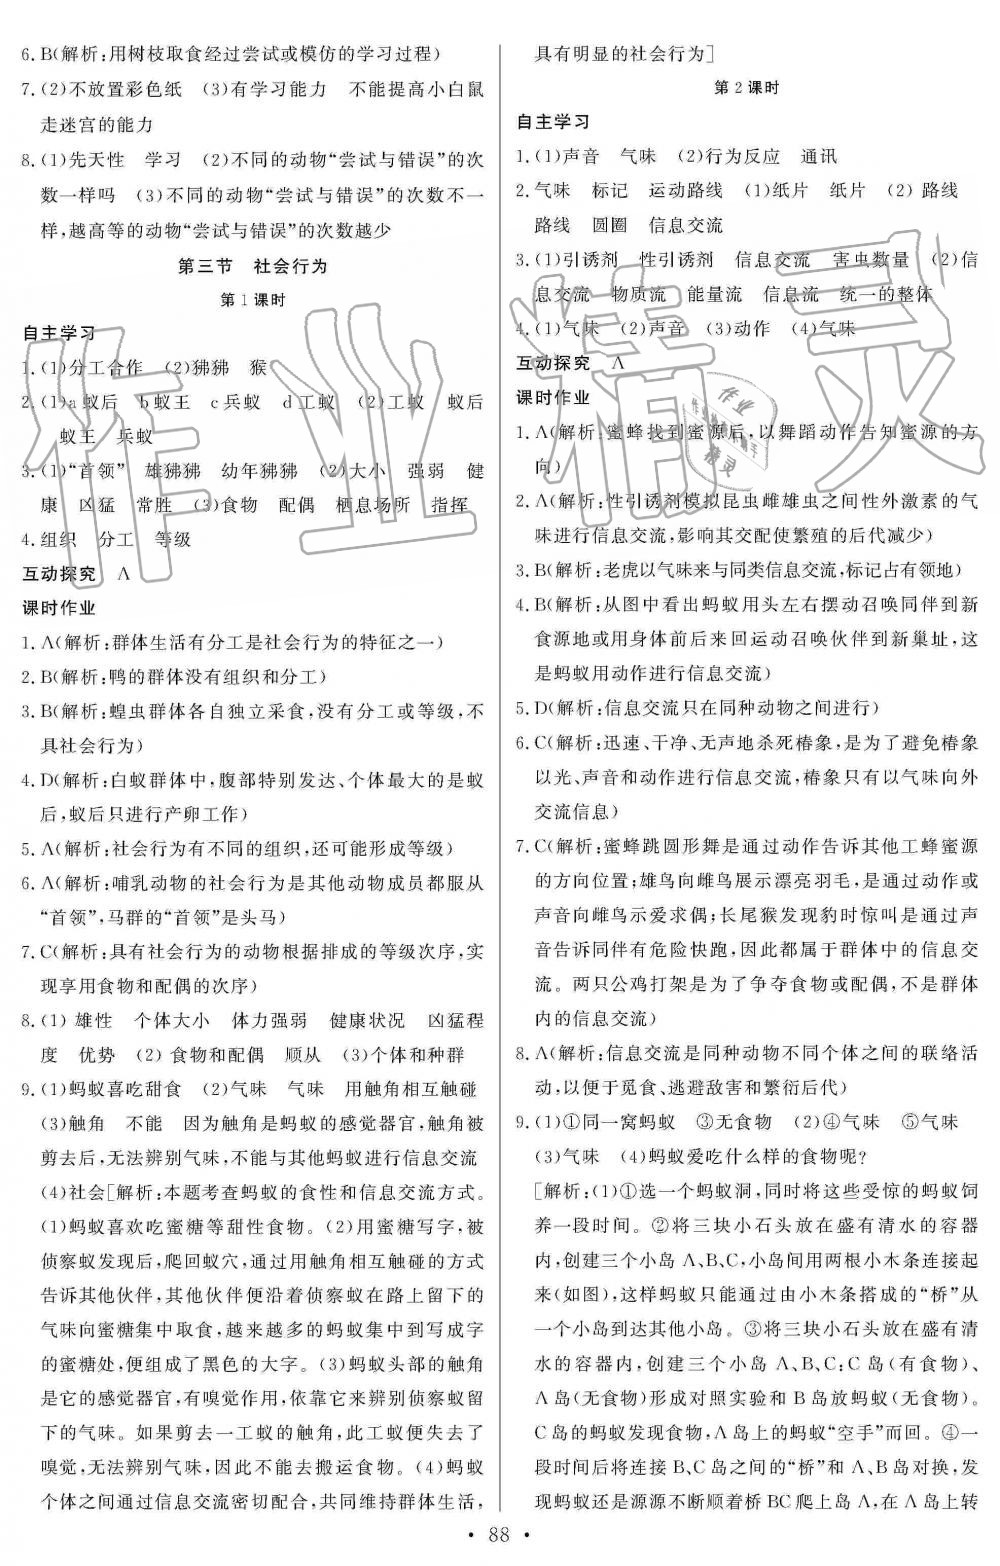 6. B(解析:用树枝取食经过尝试或模仿的学习过程)
7. (2)不放置彩色纸 (3)有学习能力 不能提高小白鼠
走迷宫的能力
8. (1)先天性 学习 (2)不同的动物“尝试与错误”的次
数一样吗 (3)不同的动物“尝试与错误”的次数不一
样,越高等的动物“尝试与错误”的次数越少
第三节 社会行为
第 1 课时
自主学习
1. (1)分工合作 (2)狒狒 猴
2. (1)a 蚁后 b 蚁王 c 兵蚁 d 工蚁 (2)工蚁 蚁后
蚁王 兵蚁
3. (1)“首领” 雄狒狒 幼年狒狒 (2)大小 强弱 健
康 凶猛 常胜 (3)食物 配偶 栖息场所 指挥
4. 组织 分工 等级
互动探究 A
课时作业
1. A(解析:群体生活有分工是社会行为的特征之一)
2. B(解析:鸭的群体没有组织和分工)
3. B(解析:蝗虫群体各自独立采食,没有分工或等级,不
具社会行为)
4. D(解析:白蚁群体中,腹部特别发达、个体最大的是蚁
后,蚁后只进行产卵工作)
5. A(解析:社会行为有不同的组织,还可能形成等级)
6. A(解析:哺乳动物的社会行为是其他动物成员都服从
“首领”,马群的“首领”是头马)
7. C(解析:具有社会行为的动物根据排成的等级次序,实
现享用食物和配偶的次序)
8. (1) 雄性 个体大小 体力强弱 健康状况 凶猛程
度 优势 (2) 食物和配偶 顺从 (3)个体和种群
9. (1)蚂蚁喜吃甜食 (2)气味 气味 用触角相互触碰
(3)触角 不能 因为触角是蚂蚁的感觉器官,触角被
剪去后,无法辨别气味,不能与其他蚂蚁进行信息交流
(4)社会[解析:本题考查蚂蚁的食性和信息交流方式。
(1)蚂蚁喜欢吃蜜糖等甜性食物。(2)用蜜糖写字,被
侦察蚁发现后,爬回蚁穴,通过用触角相互触碰的方式
告诉其他伙伴,其他伙伴便沿着侦察蚁在路上留下的
气味向蜜糖集中取食,越来越多的蚂蚁集中到写成字
的蜜糖处,便组成了黑色的大字。(3)蚂蚁头部的触角
是它的感觉器官,有嗅觉作用,依靠它来辨别侦察蚁留
下的气味。如果剪去一工蚁的触角,此工蚁便失去了
嗅觉,无法辨别气味,因此不能去搬运食物。(4)蚂蚁
个体之间通过信息交流密切配合,共同维持群体生活,
具有明显的社会行为]
第 2 课时
自主学习
1. (1)声音 气味 (2)行为反应 通讯
2. 气味 标记 运动路线 (1)纸片 纸片 (2) 路线
路线 圆圈 信息交流
3. (1)引诱剂 性引诱剂 信息交流 害虫数量 (2)信
息交流 物质流 能量流 信息流 统一的整体
4. (1)气味 (2)声音 (3)动作 (4)气味
互动探究 A
课时作业
1. A(解析:蜜蜂找到蜜源后,以舞蹈动作告知蜜源的方
向)
2. A(解析:性引诱剂模拟昆虫雌雄虫之间性外激素的气
味进行信息交流,影响其交配使繁殖的后代减少)
3. B(解析:老虎以气味来与同类信息交流,标记占有领地)
4. B(解析:从图中看出蚂蚁用头左右摆动召唤同伴到新
食源地或用身体前后来回运动召唤伙伴到新巢址,这
是蚂蚁用动作进行信息交流)
5. D(解析:信息交流只在同种动物之间进行)
6. C(解析:迅速、干净、无声地杀死椿象,是为了避免椿象
以光、声音和动作进行信息交流,椿象只有以气味向外
交流信息)
7. C(解析:蜜蜂跳圆形舞是通过动作告诉其他工蜂蜜源
的方向位置;雄鸟向雌鸟展示漂亮羽毛,是通过动作或
声音向雌鸟示爱求偶;长尾猴发现豹时惊叫是通过声
音告诉同伴有危险快跑,因此都属于群体中的信息交
流。两只公鸡打架是为了争夺食物或配偶,不是群体
内的信息交流)
8. A(解析:信息交流是同种动物不同个体之间的联络活
动,以便于觅食、逃避敌害和繁衍后代)
9. (1)①同一窝蚂蚁 ③无食物 (2)④气味 ⑤气味
(3)气味 (4)蚂蚁爱吃什么样的食物呢?
[解析:(1)①选一个蚂蚁洞,同时将这些受惊的蚂蚁饲
养一段时间。②将三块小石头放在盛有清水的容器
内,创建三个小岛 A、B、C,小岛间用两根小木条连接起
来(如图),这样蚂蚁只能通过由小木条搭成的“桥”从
一个小岛到达其他小岛。③将三块小石头放在盛有清
水的容器内,创建三个小岛 A、B、C:C 岛(有食物)、
A 岛(无食物)形成对照实验和 B 岛放蚂蚁(无食物)。
C 岛的蚂蚁发现食物,A 岛上的蚂蚁“空手”而回。④一
段时间后将连接 B、C 岛之间的“桥”和 A、B 岛对换,发
现蚂蚁还是源源不断顺着桥 BC 爬上岛 A,在 A 岛上转
• 88 •
作业精灵
作业
精灵